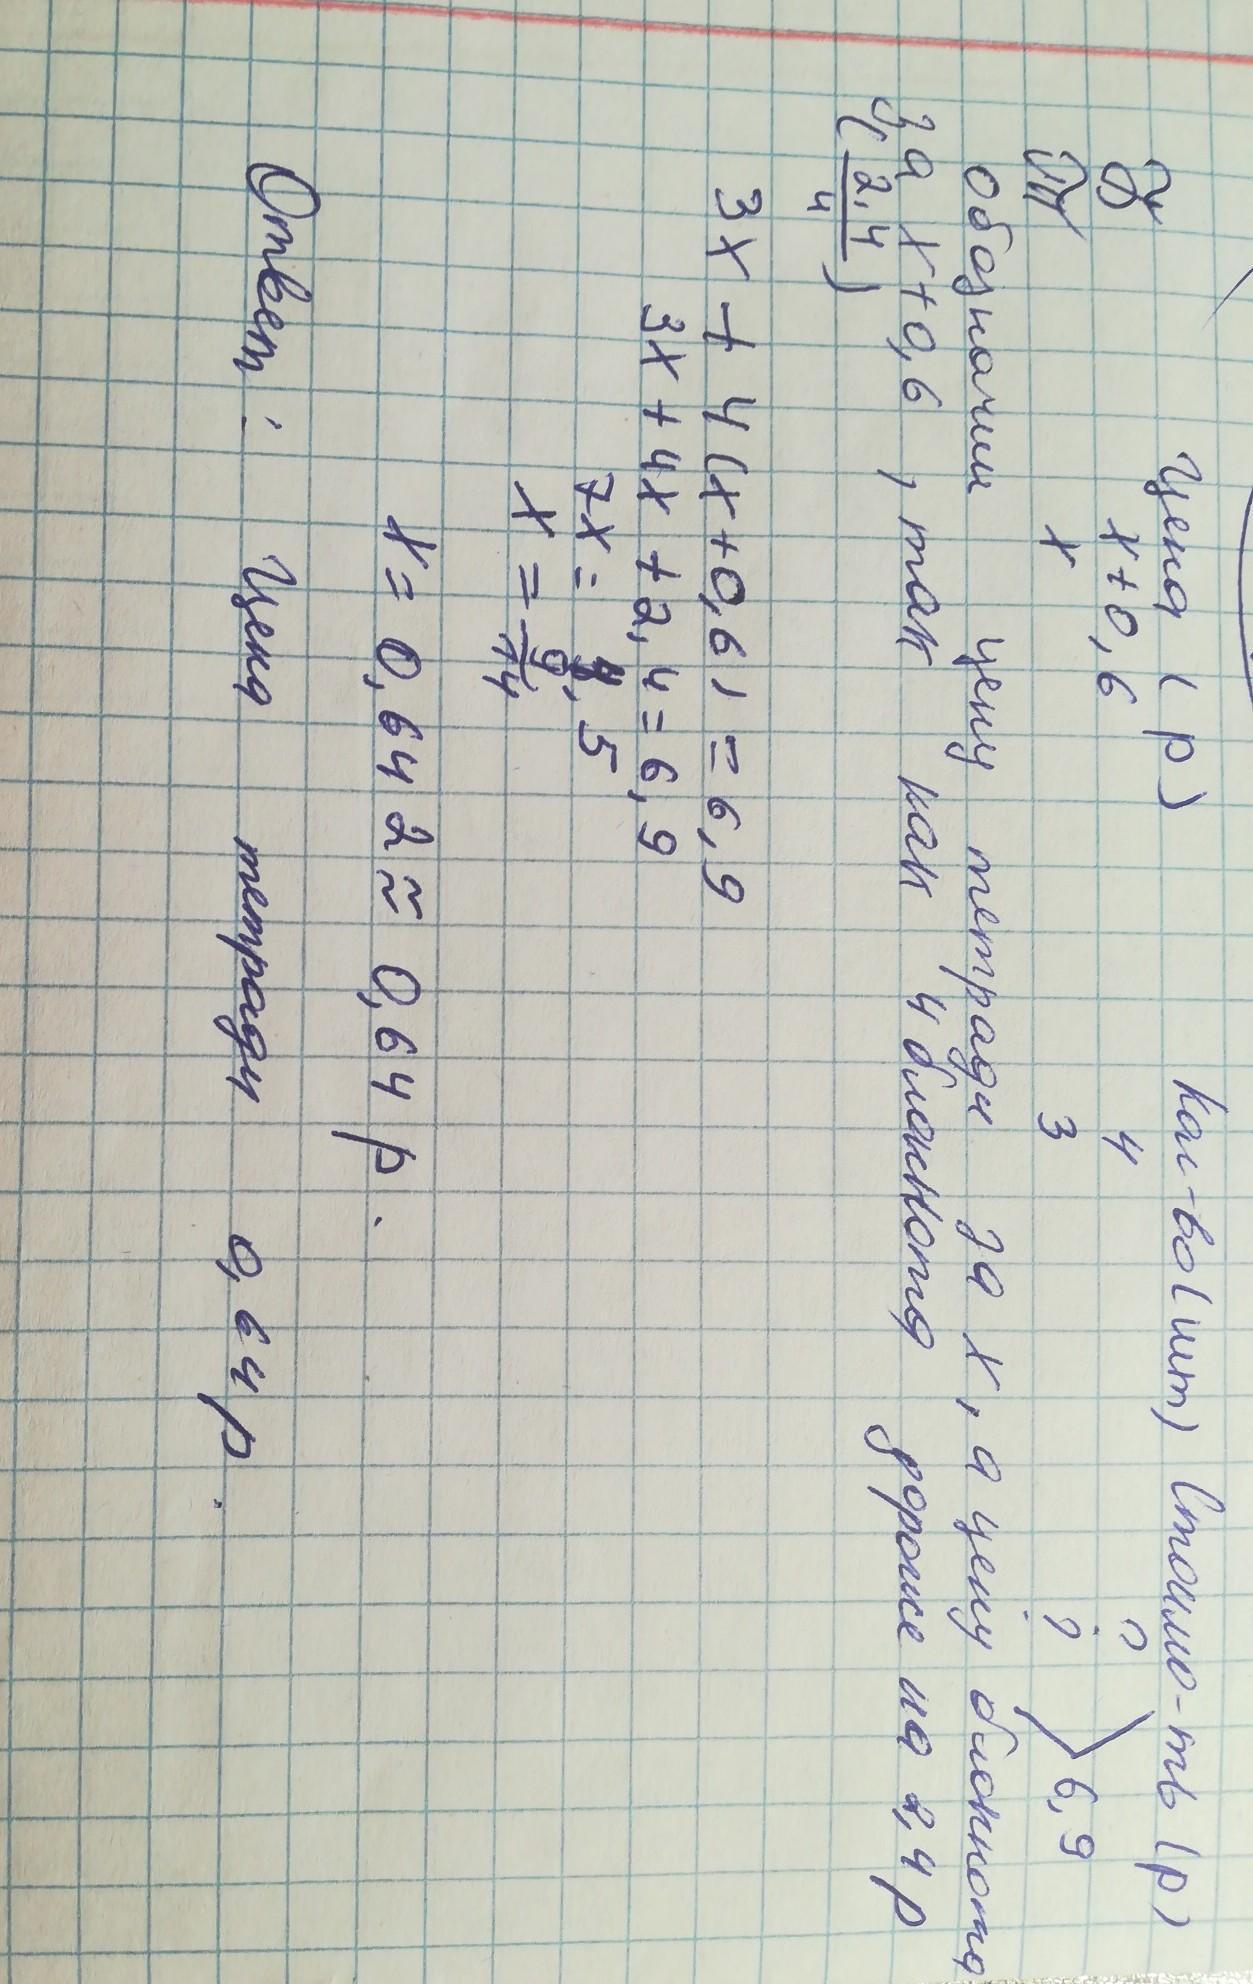 Цена (р) Кол-во(шт) Стоимо-ть (р)
Б х+0,6 4 ?
Т х 3 ? 6,9
Обозначим цену тетради за х, а цену блокнота
за х+0,6, так как 4 блокнота дороже на 2,4 р
(2,4/4)
3х + 4(х+0,6) = 6,9
3х + 4х + 2,4 = 6,9
7х = 4,5
х = 9/14
х = 0,642 ≈ 0,64 р.
Ответ: Цена тетради 0,64р.